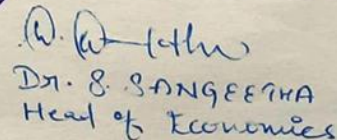 Dr. S. SANGEETHA
Head of Economics